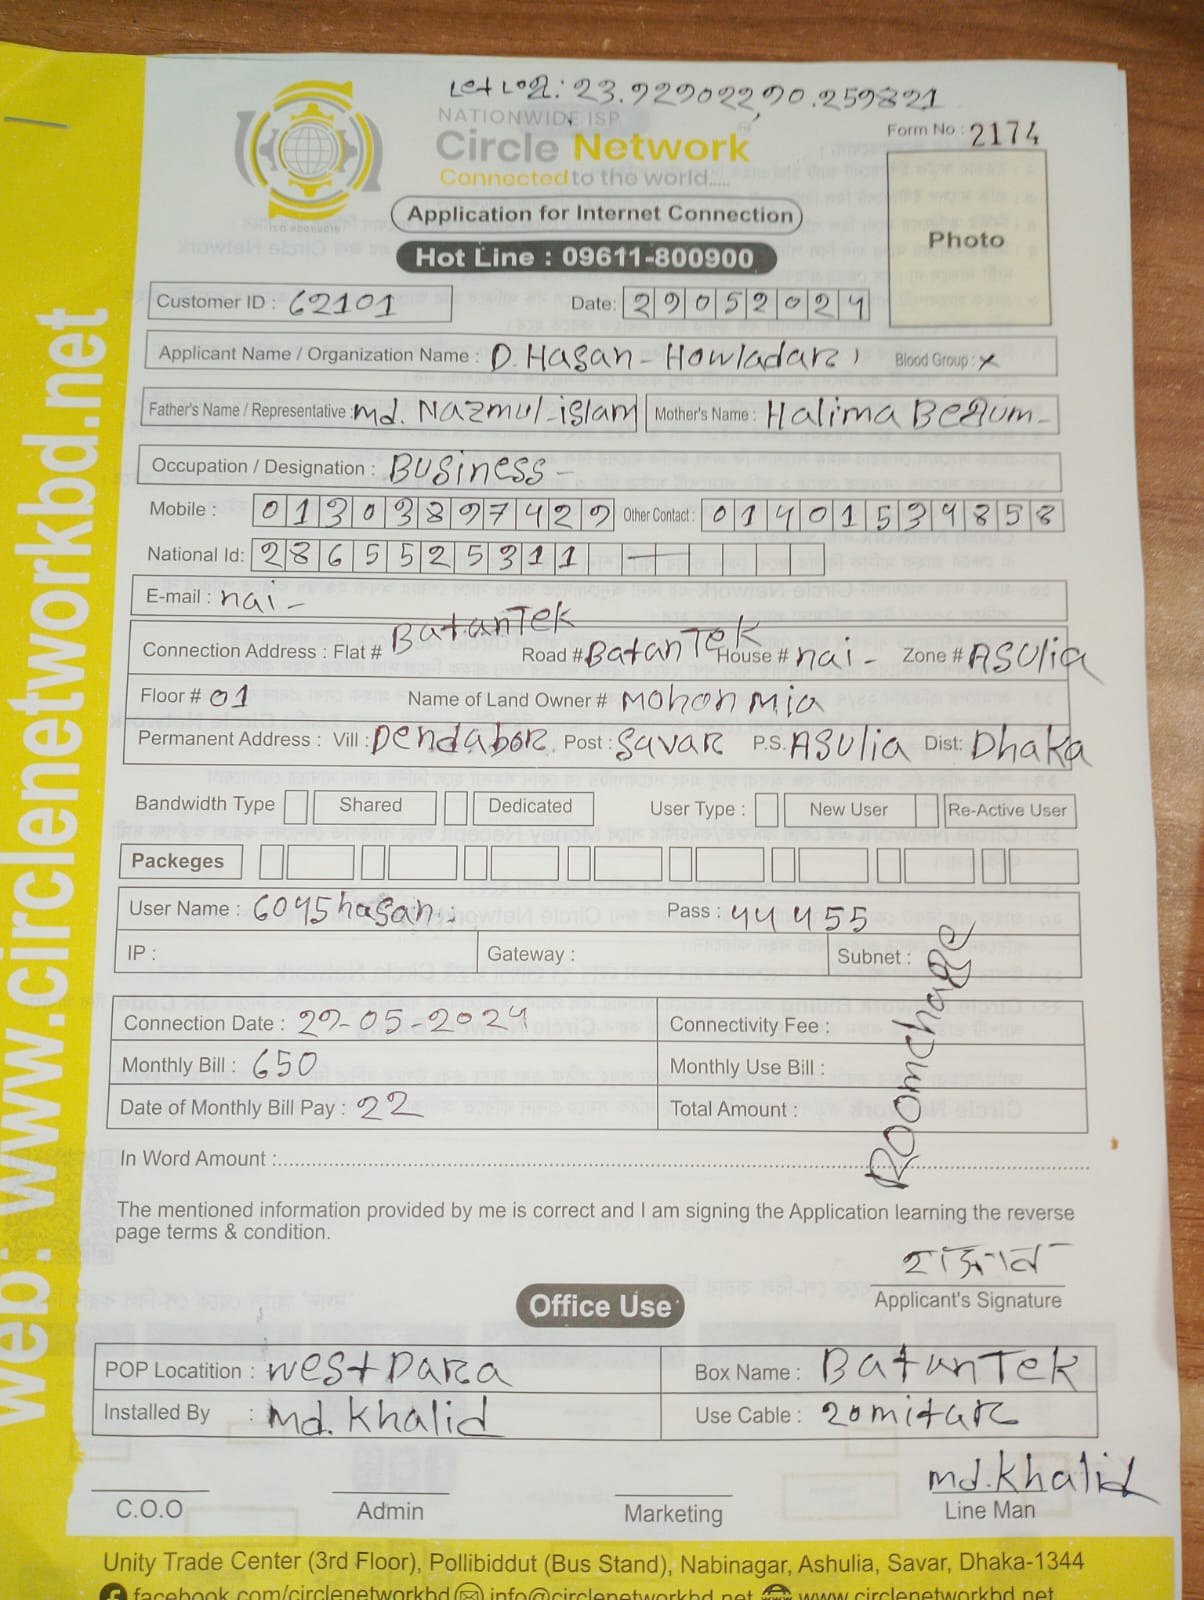 Let Log: 23.92902290.259821
NATIONWIDE ISP
Circle Network
Connected to the world.....
Form No : 2174
Application for Internet Connection
Photo
Hot Line : 09611-800900
Customer ID : 62101 Date: 29052024
Applicant Name / Organization Name : D. Hasan - Howladar Blood Group : x
Father's Name / Representative : md. Nazmul-islam Mother's Name : Halima Begum-
Occupation / Designation : Business-
Mobile : 01303897429 Other Contact : 01401534858
National Id: 2865525311
E-mail : nai-
Connection Address : Flat # BatanTek Road # BatanTek House # nai- Zone # ASulia
Floor # 01 Name of Land Owner # mohon mia
Permanent Address : Vill : Dendabor Post : Savar P.S. ASulia Dist: Dhaka
Bandwidth Type Shared Dedicated User Type : New User Re-Active User
Packeges
User Name : 6045hasan Pass : 44455
IP : Gateway : Subnet :
Roomchage
Connection Date : 29-05-2024 Connectivity Fee :
Monthly Bill : 650 Monthly Use Bill :
Date of Monthly Bill Pay : 22 Total Amount :
In Word Amount :
The mentioned information provided by me is correct and I am signing the Application learning the reverse
page terms & condition.
হাসান
Applicant's Signature
Office Use
POP Locatition : west Para Box Name : BatanTek
Installed By : md. Khalid Use Cable : 20mitar
md. Khalid
C.O.O Admin Marketing Line Man
Unity Trade Center (3rd Floor), Pollibiddut (Bus Stand), Nabinagar, Ashulia, Savar, Dhaka-1344
facebook.com/circlenetworkbd info@circlenetworkbd.net www.circlenetworkbd.net
web: www.circlenetworkbd.net